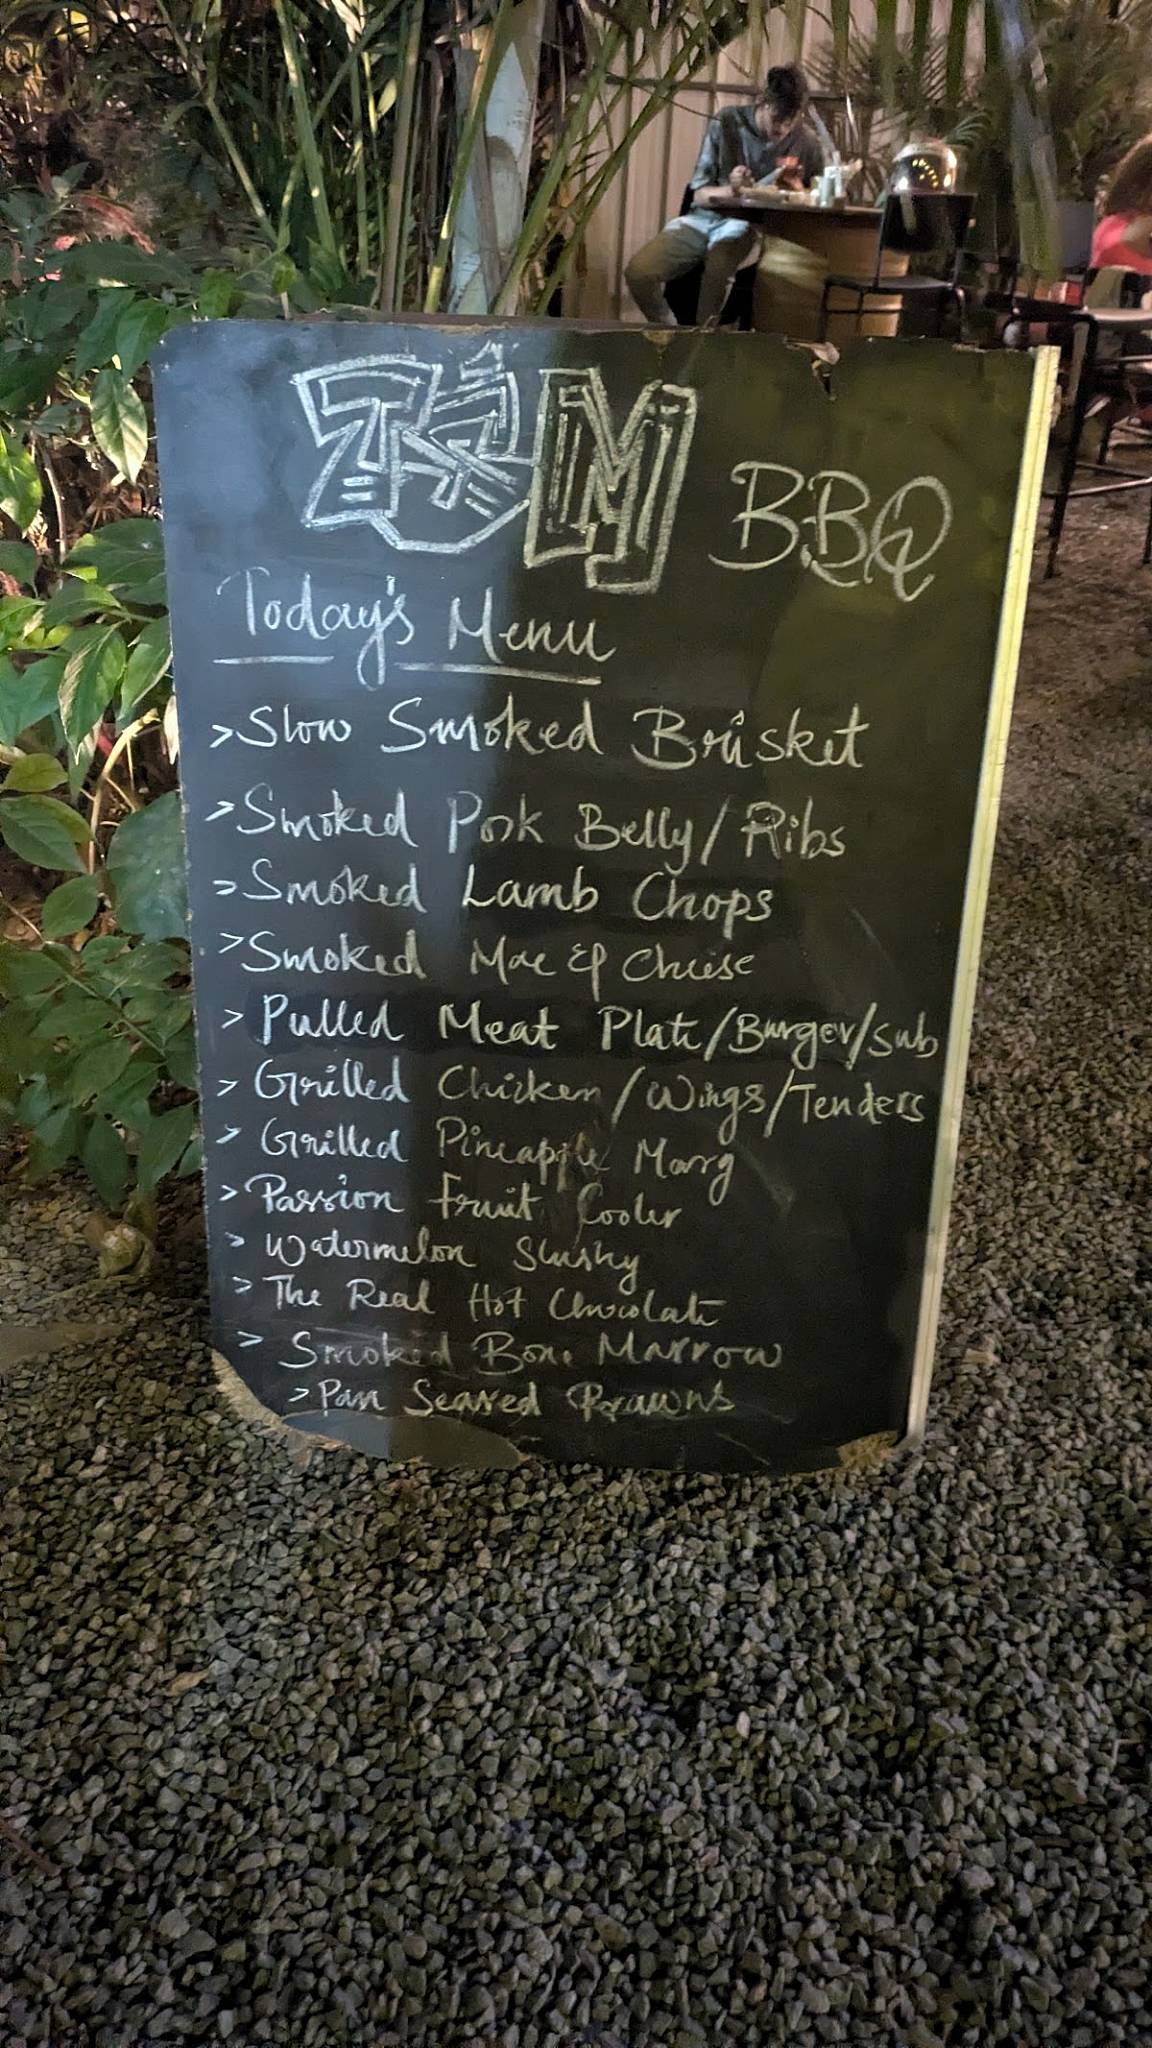 BBQ
Today's Menu
> Slow Smoked Brisket
> Smoked Pork Belly/Ribs
> Smoked Lamb Chops
> Smoked Mac & Cheese
> Pulled Meat Plate/Burger/Sub
> Grilled Chicken/Wings/Tenders
> Grilled Pineapple Marg
> Passion Fruit Cooler
> Watermelon Slushy
> The Real Hot Chocolate
> Smoked Bone Marrow
> Pan Seared Prawns